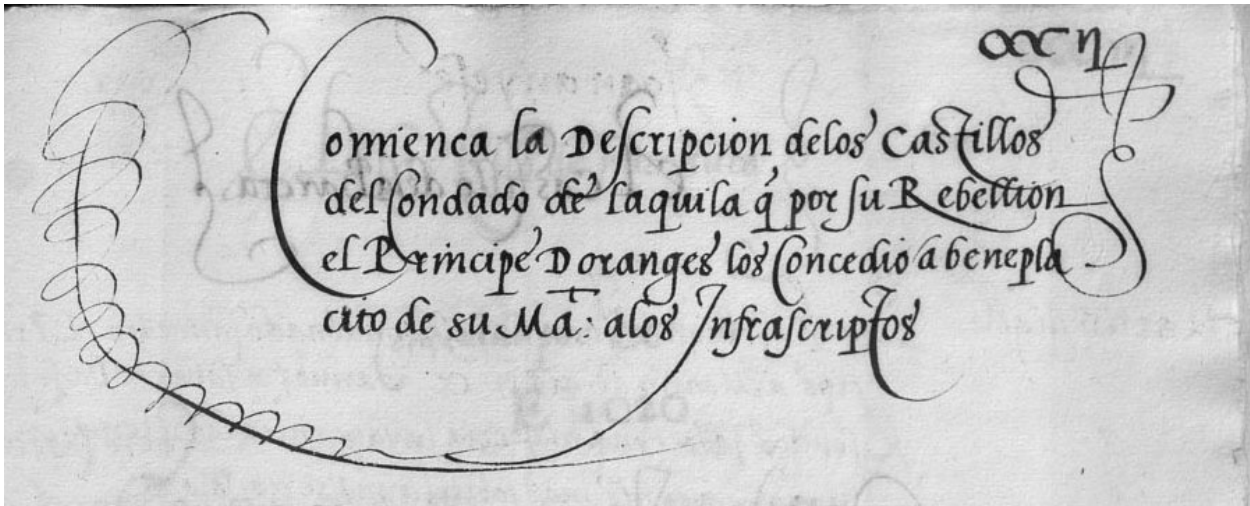 Comienca la Descripcion delos Castillos
del Condado de laquila q̃ por su Rebellion
el Principe Doranges los Concedio á benepla
cito de su Ma.ᵗ: alos Infrascriptos